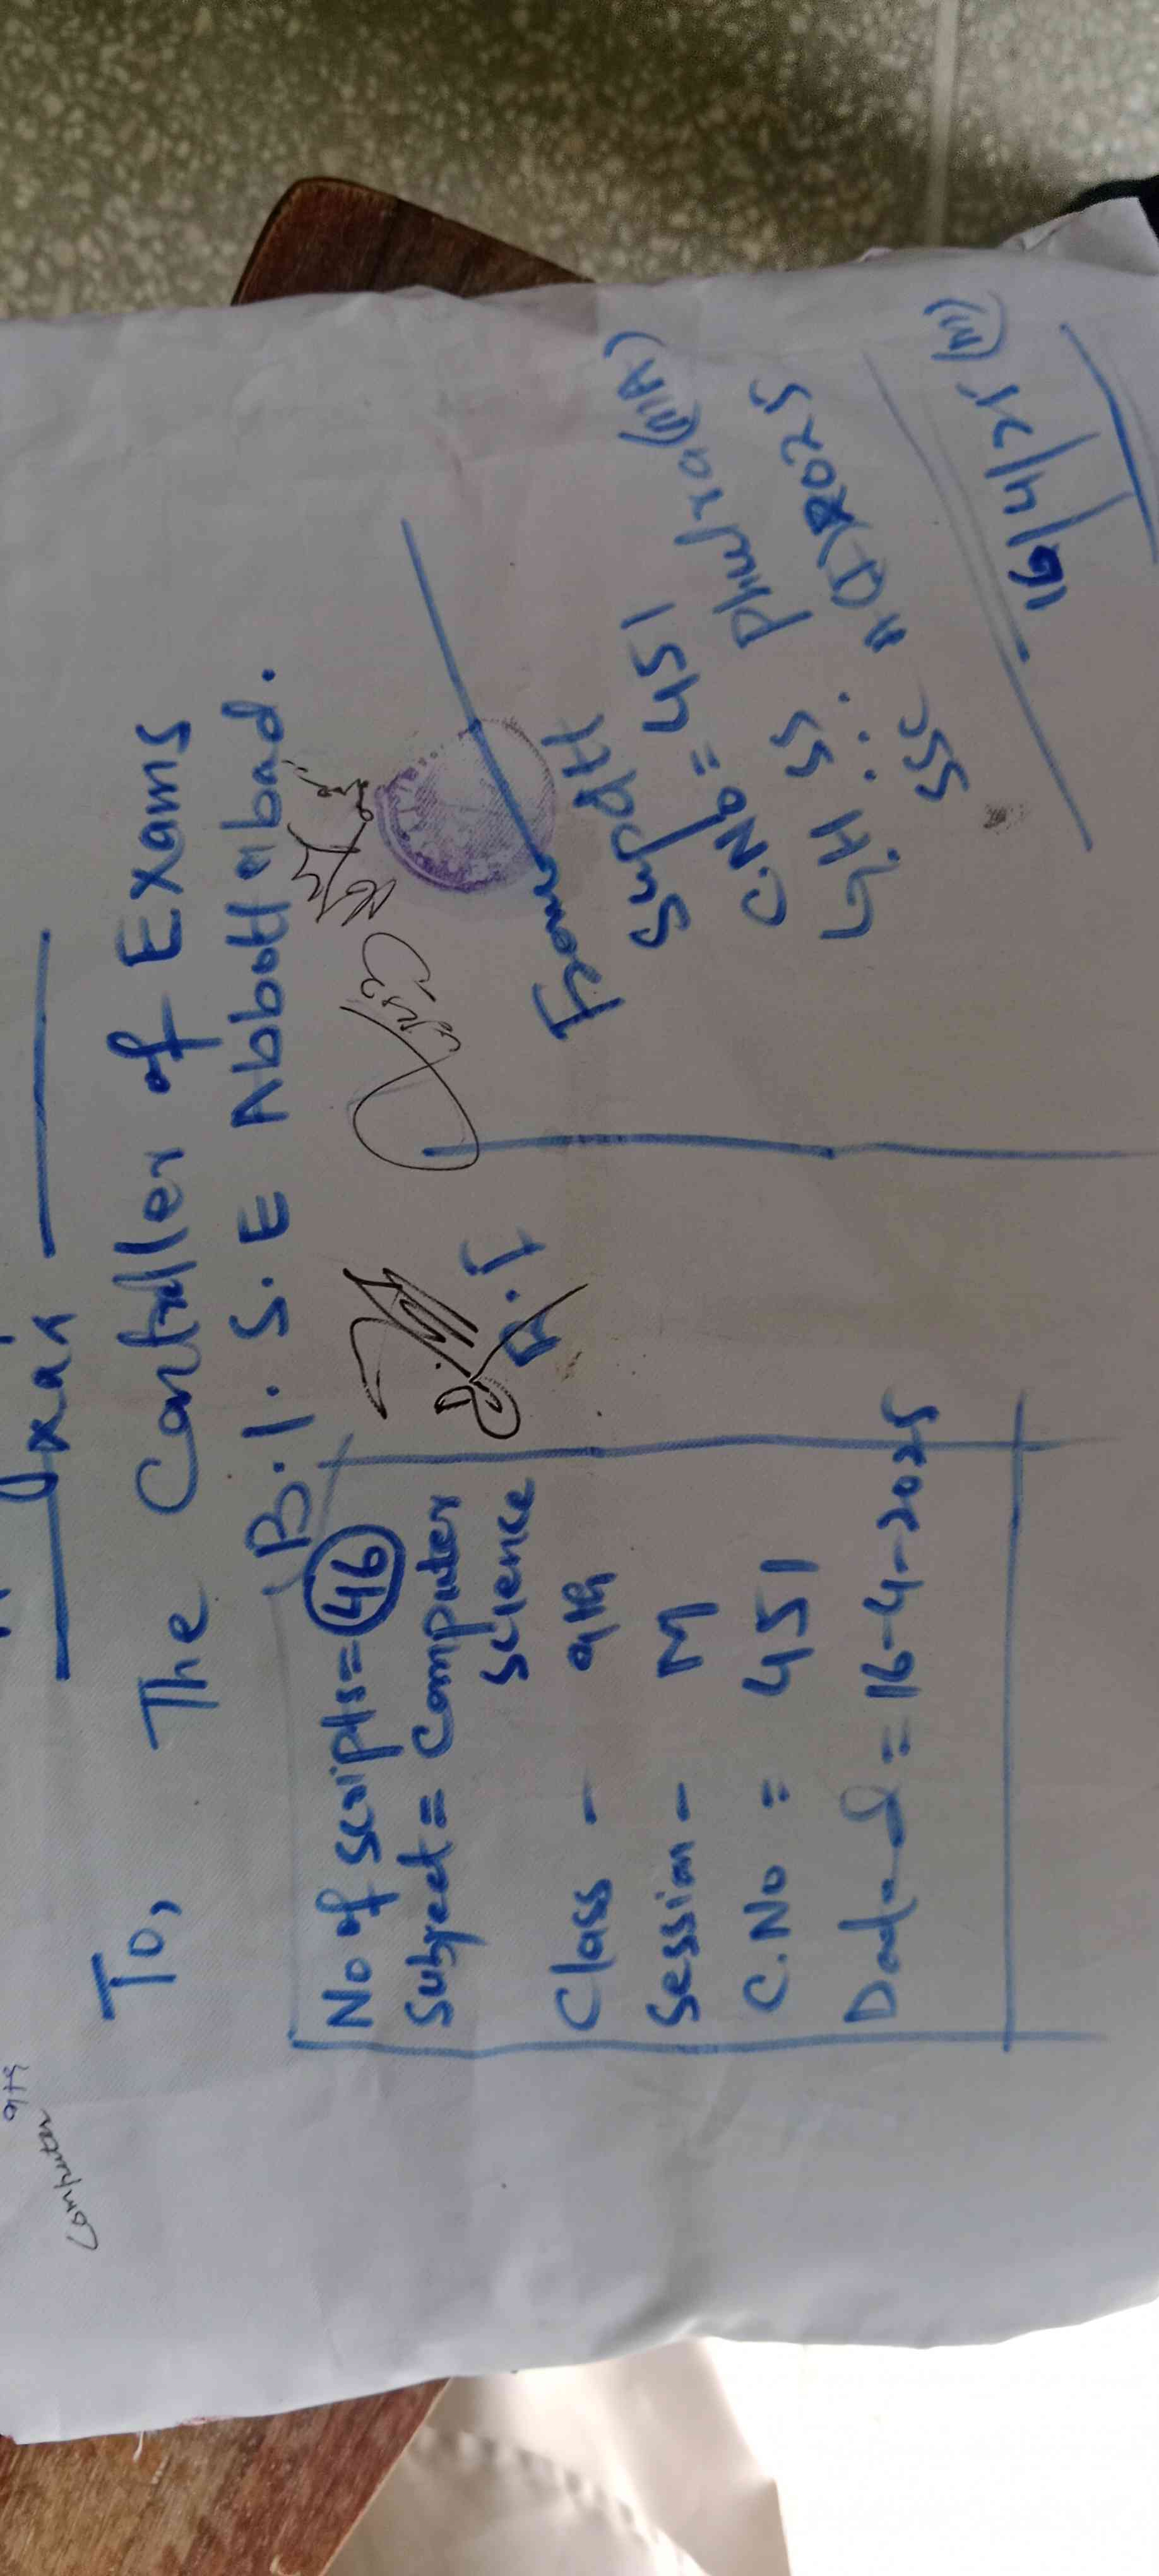 9th
Computer
To,
The Controller of Exams
B.I.S.E Abbottabad.
No of scripts = 46
Subject = Computer
Science
Class - 9th
Session - M
C.No = 451
Dated = 16-4-2025
J.A
From
Supdtt
C.No = 451
G.H.S.S Phulra (MA)
SSC " A(I) 2025
16/4/25 (M)